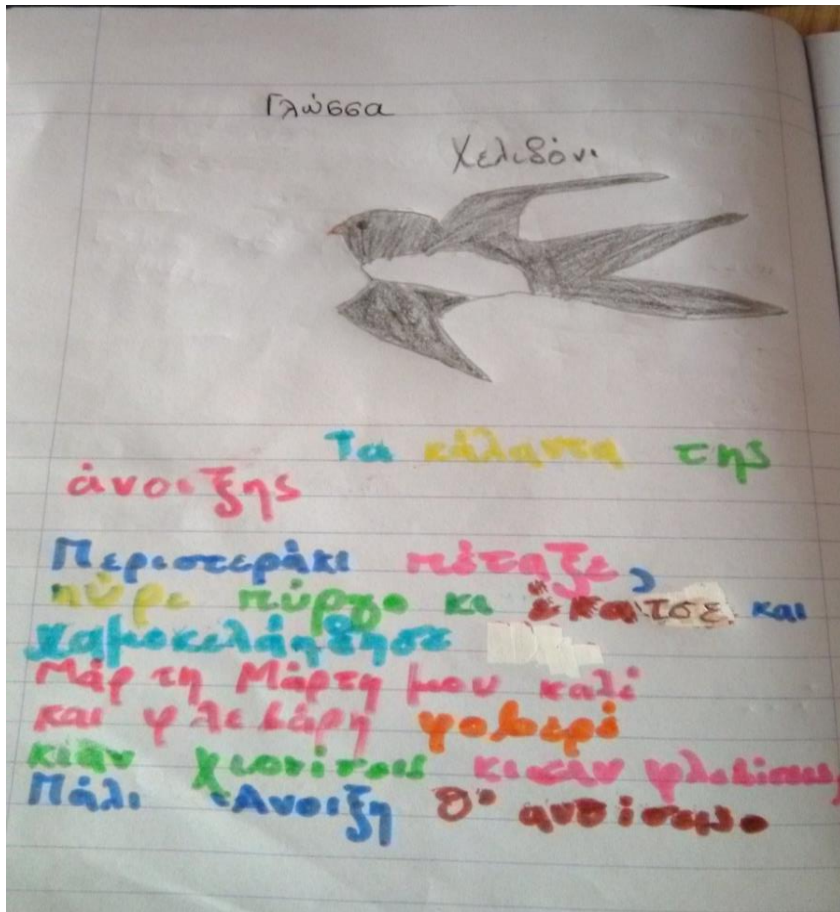 Γλώσσα
Χελιδόνι
Τα κάλαντα της
άνοιξης
Περιστεράκι πέταξε,
πύργο κι έκατσε και
χαμοκελάηδησε
Μάρτη Μάρτη μου καλέ
και φλεβάρη φοβερέ
κιαν χιονίσεις κι καν φλεβίσεις
Πάλι Άνοιξη θ'